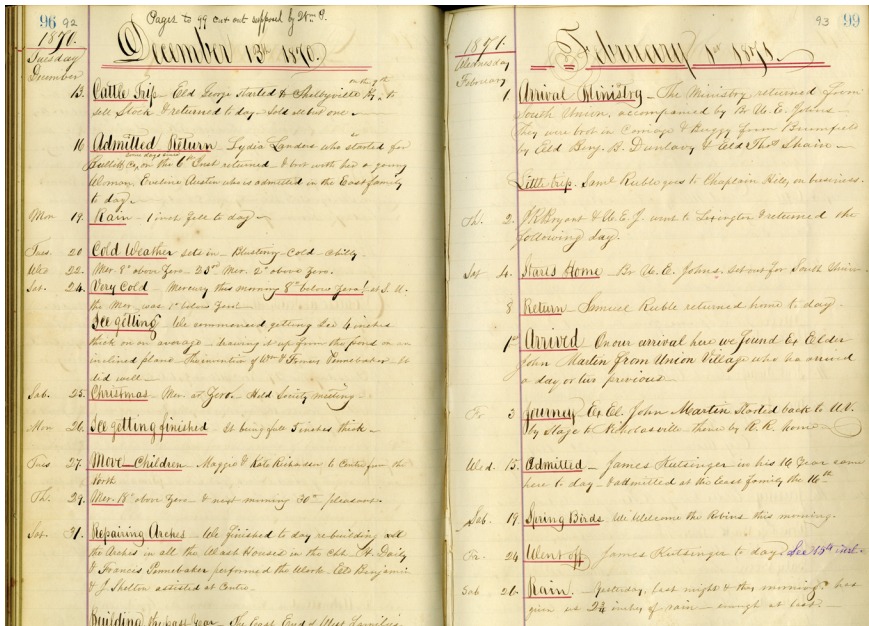 96 92
Pages to 99 cut out supposed by Wm P.
1870.
December 13th 1870.
Tuesday
December
on the 7th
13. Cattle Trip – Eld George started to Shelbyville Ky. to
sell Stock & returned to day – Sold all but one –
16 Admitted Return – Lydia Landers who started for
some days since
Bullett Co, on the 6th inst returned & brot with her a young
Woman, Eveline Austin who is admitted in the East family
to day –
Mon 19. Rain – 1 inch fell to day –
Tues. 20 Cold Weather sets in – Blustering – Cold – chilly.
Wed 22. Mer. 8° above Zero – 23rd Mer. 2° above Zero.
Sat. 24. Very Cold – Mercury this morning 8° below Zero! at S. U.
the Mer. was 1° below Zero –
Ice getting We commenced getting Ice 4 inches
thick on an average – hauling it up from the pond on an
inclined plane – The invention of Wm & Francis Pennebaker – It
did well –
Sab. 25. Christmas – Mer. at Zero. Held Society meeting –
Mon 26. Ice getting finished It being full 5 inches thick –
Tues 27. Move Children Maggie & Kate Richardson to Centre from the
North
Th. 29. Mer. 18° above Zero – & next morning 30° pleasant.
Sat. 31. Repairing Arches – We finished to day rebuilding all
the Arches in all the Wash Houses in the – H. Daily
& Francis Pennebaker performed the Work. Eld Benjamin
& J. Shelton assisted at Centre.
Building the past Year – The East End of West Families
93 99
1871.
February 1st 1871.
Wednesday
February
1 Arrival Ministry – The Ministry returned from
South Union, accompanied by Br U. E. Johns –
They were brot in Carriage & Buggy from Brumfield
by Eld Benj. B. Dunlavy & Eld Thos Shain –
Little trip. Saml Ruble goes to Chaplain Hills, on business.
Th. 2. J R Bryant & U. E. J. went to Lexington & returned the
following day.
Sat 4. Starts Home – Br U. E. Johns, Set out for South Union.
8 Return – Samuel Ruble returned home to day
1st Arrived On our arrival here we found Ex Elder
John Martin from Union Village who had arrived
a day or two previous –
Fr 3 Journey Ex El. John Martin Started back to U.V.
by Stage to Nicholasville thence by R. R. home –
Wed. 15. Admitted – James Kutsinger in his 16 Year came
here to day – & admitted at the East family the 16th
Sab. 19. Spring Birds We Welcome the Robins this morning.
Fr. 24 Went off James Kutsinger to day See 15th inst.
Sab 26. Rain. – Yesterday, last night & this morning has
given us 2¾ inches of rain – enough at last. –